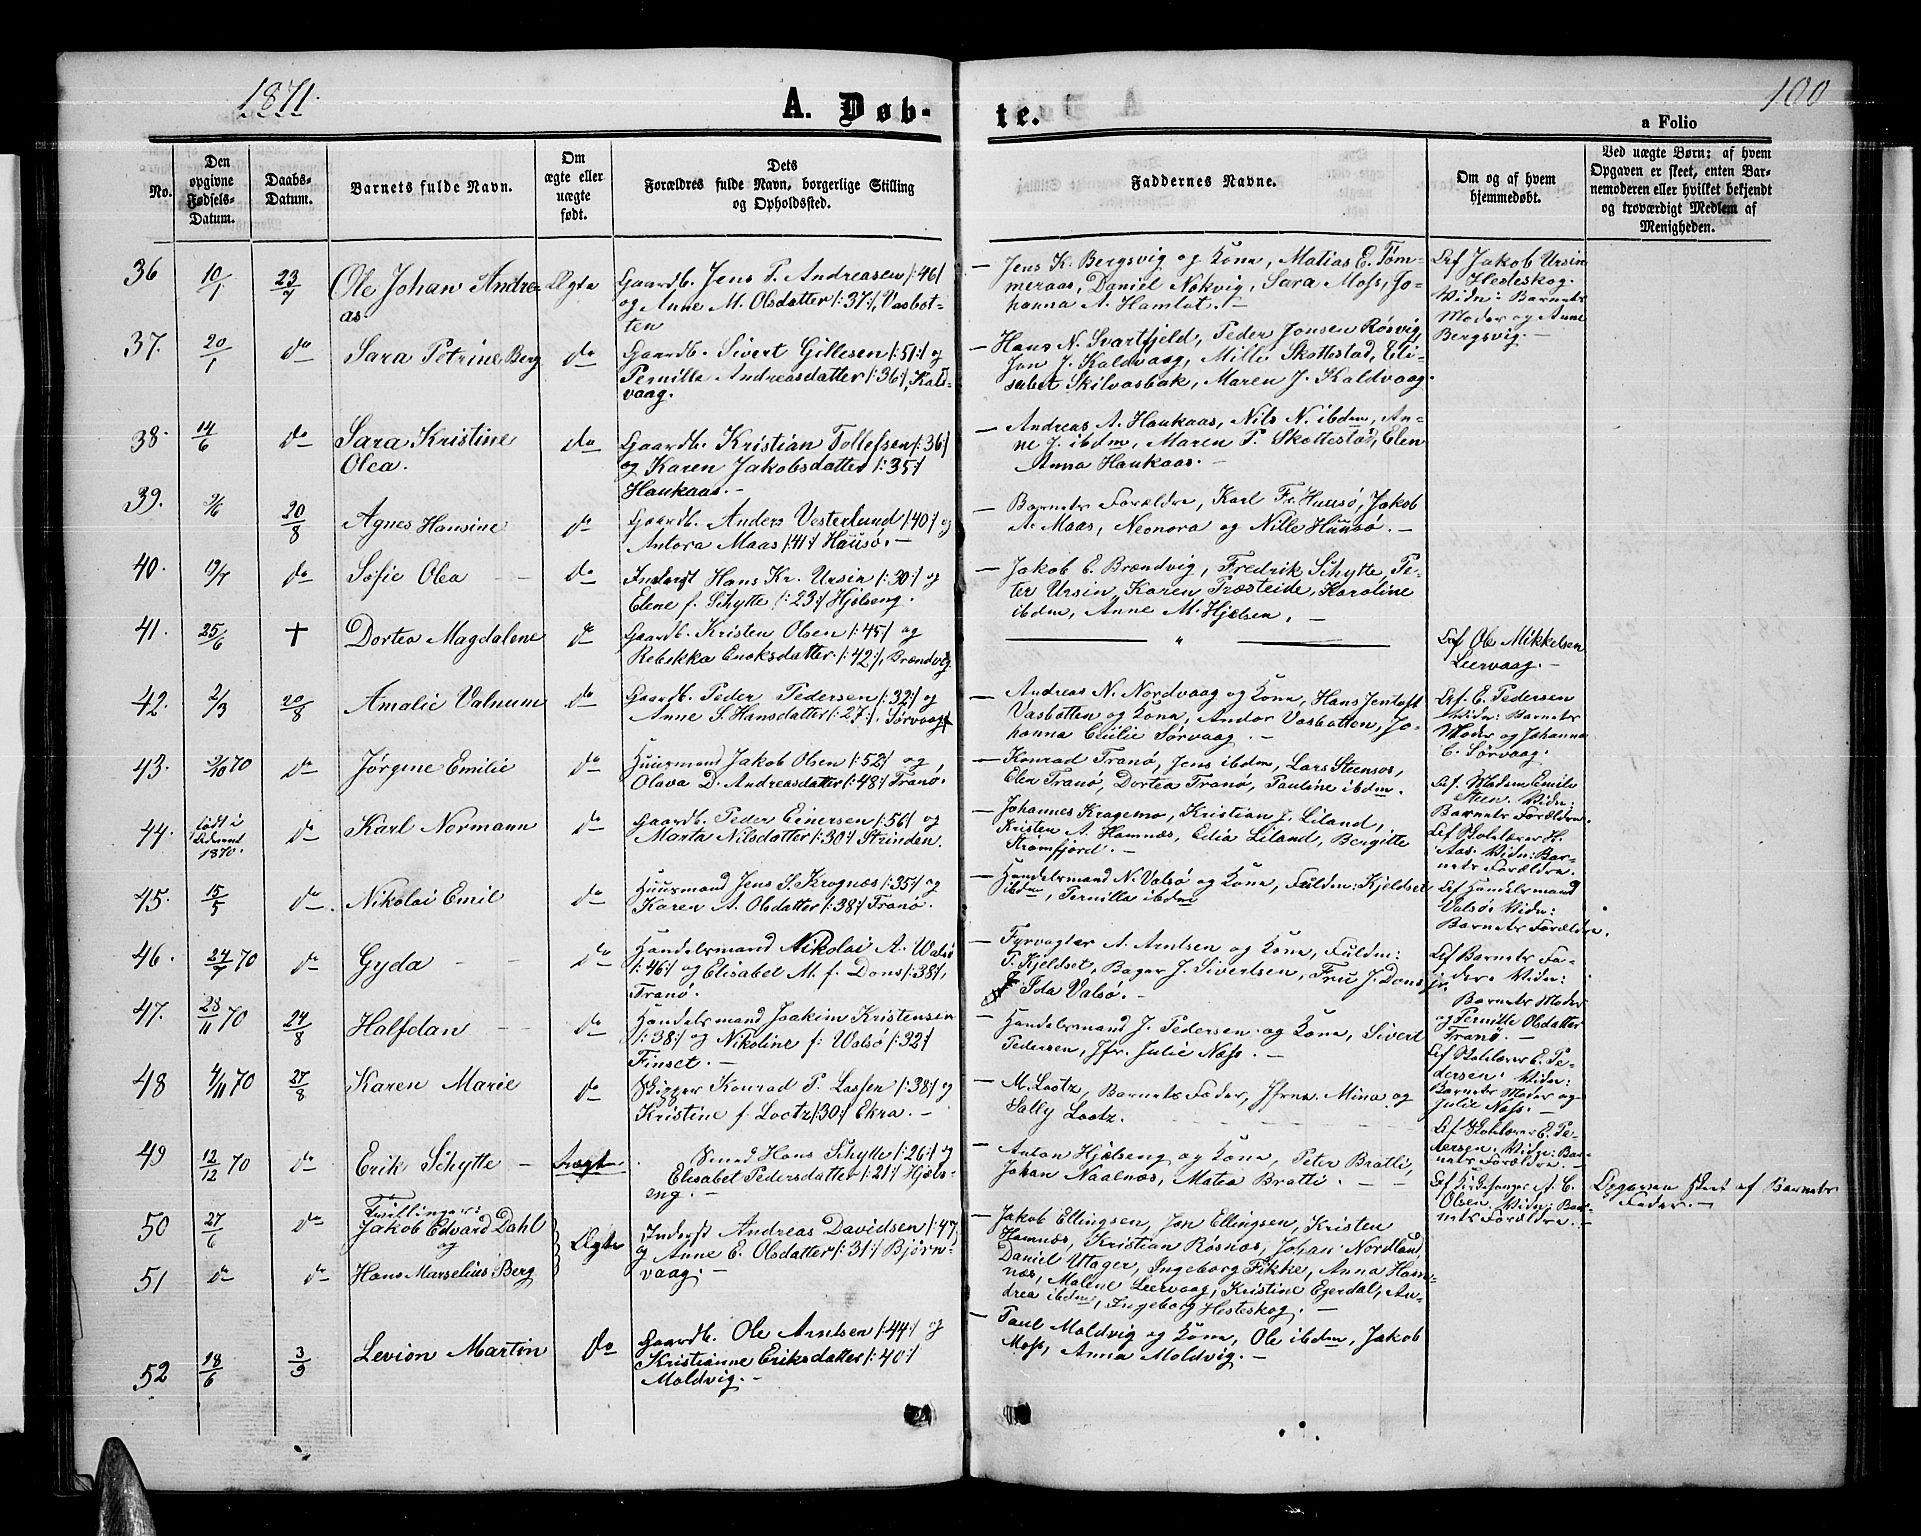 1871.
A. Døb-
te.
100
a Folio
No.
Den
opgivne
Fødsels-
Datum.
Daabs-
Datum.
Barnets fulde Navn.
Om
ægte eller
uægte
født.
Dets
Forældres fulde Navn, borgerlige Stilling
og Opholdssted.
Faddernes Navne.
Om og af hvem
hjemmedøbt.
Ved uægte Børn: af hvem
Opgaven er skeet, enten Bar-
nemoderen eller hvilket bekjendt
og troværdigt Medlem af
Menigheden.
36 10/1 23/7 Ole Johan Andre-
as.
Ægte
Gaardb. Jens P. Andreasen /:46/
og Anne M. Olsdatter /:37:/, Vasbot-
ten
- Jens K. Bergsvig og Kone, Matias E. Tøm-
meraas, Daniel Nøkvig, Sara Moss, Jo-
hanna A. Hamlot. -
Af Jakob Ursin
Hedeskog.
Vidn: Barnets
Moder og Anne
Bergsvig. -
37. 20/1 do Sara Petrine Berg do
Gaardb. Sivert Gillesen /:51:/ og
Pernilla Andreasdatter /:36/, Kald-
vaag.
- Hans N. Svartfjeld, Peder Jonsen Røsvig,
Jon J. Kaldvaag, Mille Skottestad, Eli-
sabet Skilvasbak, Maren J. Kaldvaag.
38. 14/6 do Sara Kristine
Olea.
do
Gaardb. Kristian Tollefsen /:36/
og Karen Jakobsdatter /:35:/
Haukaas. -
- Andreas A. Haukaas, Nils N. ibdm, An-
ne J. ibdm, Maren P. Skottestad, Elen
Anna Haukaas. -
39. 2/6 20/8 Agnes Hansine do
Gaardb. Anders Vesterlund /:40:/ og
Antora Maas /:41:/ Hausø. -
- Barnets Forældre, Karl Fr. Huusø, Jakob
A. Maas, Neonora og Nille Huusø. -
40. 19/7 do Sofie Olea - - do
Inderst Hans Kr. Ursin /:30:/ og
Elene f. Schytte /:23:/ Hjelseng.
- Jakob E. Brændvig, Fredrik Schytte, Pe-
ter Ursin, Karen Træsteide, Karoline
ibdm, Anne M. Hjelsen. -
41. 25/6 + Dortea Magdalene do
Gaardb. Kristen Olsen /:45/ og
Rebekka Enoksdatter /:42:/, Brændvig.
"
Af Ole Mikkelsen
Leervaag. -
42. 2/3 20/8 Amalie Valnum do
Gaardb. Peder Pedersen /:32:/ og
Anne S. Hansdatter /:27:/. Sørvaag
- Andreas N. Nordvaag og Kone, Hans Jentoft
Vasbotten og Kone, Andor Vasbotten, Jo-
hanna Cecilie Sørvaag. -
Af. E. Pedersen
Vidn: Barnets
Moder og Johanna
C. Sørvaag.
43. 5/10 70 do Jørgine Emilie do
Huusmand Jakob Olsen /:52:/ og
Olava D. Andreasdatter /:48:/ Tranø.
- Konrad Tranø, Jens ibdm, Lars Steensøs,
Elen Tranø, Dortea Tranø, Pauline ibdm.
Af. Madam Emilie
Steen. Vidn:
Barnets Forældre.
44. født i
1870. do Karl Normann do
Gaardb. Peder Einersen /:56/ og
Marta Nilsdatter /:30:/ Strinden.
- Johannes Kragemo, Kristian J. Liland,
Kristen A. Hamnæs, Edia Liland, Bergitte
Strømfjord. -
Af Skolelærer H.
Aas. Vidn: Bar-
nets Forældre.
45. 15/5 do Nikolai Emil do
Huusmand Jens S. Krognæs /:35:/ og
Karen A. Olsdatter /:38:/ Tranø.
- Handelsmand N. Valsø og Kone, Fuldm: Kjeldset
ibdm, Pernilla ibdm
Af Handelsmand
Valsø: Vidn:
Barnets Forældre.
46. 24/7 70 do Gyda - - do
Handelsmand Nikolai A. Walsø
/:46:/ og Elisabet M. f. Dons /:38/,
Tranø.
- Fyrvogter A. Arntsen og Kone, Fuldm:
P. Kjeldset, Bager J. Sivertsen, Fru J. Dons jr.
& Ida Valsø. -
Af Barnets Fa-
der. Vidn:
Barnets Moder
og Pernille Olsdatter
Tranø. -
47. 28/11 70 24/8 Halfdan - do
Handelsmand Joakim Kristensen
/:38:/ og Nikoline f: Walsø /:32:/
Finset. -
- Handelsmand J. Pedersen og Kone, Sivert
Pedersen, Jfr. Julie Næss. -
Af Skolelærer E. Pe-
dersen. Vidn:
Barnets Moder og
Julie Næss. -
48 4/11 70 27/8 Karen Marie do
Skipper Konrad P. Lassen /:38:/ og
Kristine f. Lootz /:30:/ Ekra. -
- M. Lootz, Barnets Fader, Jfrne Mina og
Sally Lootz.
Af Skolelærer E. Pe-
dersen. Vidn: Bar-
nets Forældre. -
49 12/12 70 do Erik Schytte - Uægte
Smed Hans Schytte /:26:/ og
Elisabet Pedersdatter /:21:/ Hjels-
eng. -
- Anton Hjelseng og Kone, Peter Bratli,
Johan Naalnæs, Matea Bratti. -
Af Kirkesanger A. C.
Olsen. Vidn: Bar-
nets Forældre. -
Opgaven skeet af Barnets
Fader. -
50 27/6 do Tvillinger:
Jakob Edvard Dahl
og
51 do do Hans Marselius Berg
Ægte
Inderst Andreas Davidsen /:47/
og Anne E. Olsdatter /:31:/ Bjørn-
vaag. -
- Jakob Ellingsen, Jon Ellingsen, Kristen
Hamnæs, Kristian Røsnæs, Johan Nordland,
Daniel Utager, Ingeborg Fikke, Anna Ham-
næs, Malene Leervaag, Kristine Egerdal, An-
drea ibdm, Ingeborg Hesteskog. -
52 18/6 3/9 Levion Martin do
Gaardb. Ole Arntsen /:44:/ og
Kristianne Eriksdatter /:40:/
Moldvig. -
- Paul Moldvig og Kone, Ole ibdm, Jakob
Moss, Anna Moldvig. -